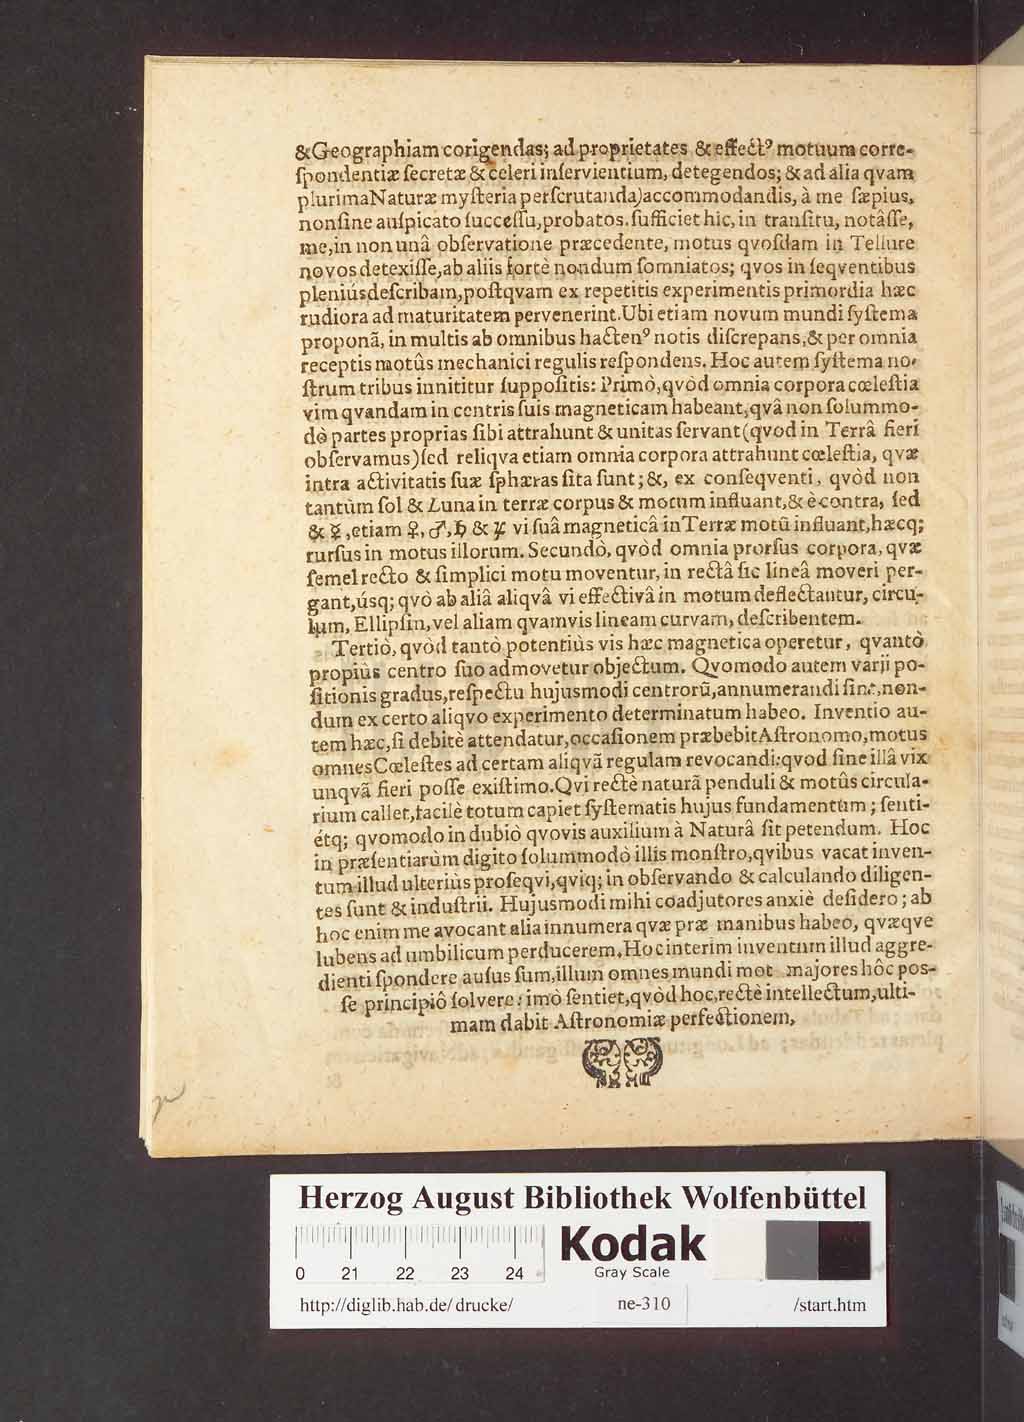 &Geographiam corigendas; ad proprietates & effectꝰ motuum corre-
ſpondentiæ ſecretæ & celeri inſervientium, detegendos; & ad alia qvam
plurima Naturæ myſteria perſcrutanda) accommodandis, à me ſæpius,
non ſine auſpicato ſucceſſu, probatos. ſufficiet hic, in tranſitu, notâſſe,
me, in non unâ obſervatione præcedente, motus qvoſdam in Tellure
novos detexiſſe, ab aliis fortè nondum ſomniatos; qvos in ſeqventibus
pleniús deſcribam, poſtqvam ex repetitis experimentis primordia hæc
rudiora ad maturitatem pervenerint. Ubi etiam novum mundi ſyſtema
proponã, in multis ab omnibus hactenꝰ notis diſcrepans, & per omnia
receptis motûs mechanici regulis reſpondens. Hoc autem ſyſtema no-
ſtrum tribus innititur ſuppoſitis: Primò, qvòd omnia corpora cœleſtia
vim qvandam in centris ſuis magneticam habeant, qvâ non ſolummo-
dò partes proprias ſibi attrahunt & unitas ſervant (qvod in Terrâ fieri
obſervamus) ſed reliqva etiam omnia corpora attrahunt cœleſtia, qvæ
intra activitatis ſuæ ſphæras ſita ſunt; &, ex conſeqventi, qvòd non
tantùm ſol & Luna in terræ corpus & motum influant, & è contra, ſed
& ☿, etiam ♀, ♂, ♄ & ♃ vi ſuâ magneticâ in Terræ motũ influant, hæcq;
rurſus in motus illorum. Secundò, qvòd omnia prorſus corpora, qvæ
ſemel recto & ſimplici motu moventur, in rectâ ſic lineâ moveri per-
gant, úsq; qvò ab aliâ aliqvâ vi effectivâ in motum deflectantur, circu-
lum, Ellipſin, vel aliam qvamvis lineam curvam, deſcribentem.
Tertiò, qvòd tantò potentiùs vis hæc magnetica operetur, qvantò
propiùs centro ſuo admovetur objectum. Qvomodo autem varji po-
ſitionis gradus, reſpectu hujusmodi centrorũ, annumerandi ſint, non-
dum ex certo aliqvo experimento determinatum habeo. Inventio au-
tem hæc, ſi debitè attendatur, occaſionem præbebit Aſtronomo, motus
omnes Cœleſtes ad certam aliqvã regulam revocandi: qvod ſine illâ vix
unqvã fieri poſſe exiſtimo. Qvi rectè naturã penduli & motûs circula-
rium callet, facilè totum capiet ſyſtematis hujus fundamentum; ſenti-
étq; qvomodo in dubiò qvovis auxilium à Naturâ ſit petendum. Hoc
in præſentiarùm digito ſolummodò illis monſtro, qvibus vacat inven-
tum illud ulteriùs proſeqvi, qviq; in obſervando & calculando diligen-
tes ſunt & induſtrii. Hujusmodi mihi coadjutores anxiè deſidero; ab
hoc enim me avocant alia innumera qvæ præ manibus habeo, qvæqve
lubens ad umbilicum perducerem. Hoc interim inventum illud aggre-
dienti ſpondere auſus ſum, illum omnes mundi mot majores hôc poſ-
ſe principiô ſolvere: imò ſentiet, qvòd hoc, rectè intellectum, ulti-
mam dabit Aſtronomiæ perfectionem,
Herzog August Bibliothek Wolfenbüttel
Kodak
Gray Scale
0 21 22 23 24
http://diglib.hab.de/drucke/ ne-310 /start.htm